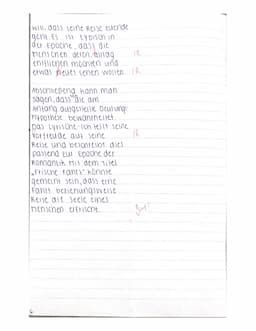 will, dass seine Reise
geht. Es ist typisch in
der Epoche, dass die
Menschen deren Alltag
entfliehen möchten und
etwas neues sehen wollen.
Abschließend kann man
sagen, dass die am
Anfang aufgestellte Deutungs-
hypothese
Das Lyrische-Ich teilt seine
Vorfreude auf seine
Reise und beschreibt dies
passend zur Epoche der
Romantik. Mit dem Titel
„Frische Fahrt" könnte
gemeint sein, dass eine
Fahrt beziehungsweise
Reise die Seele eines
Menschen erfrischt.